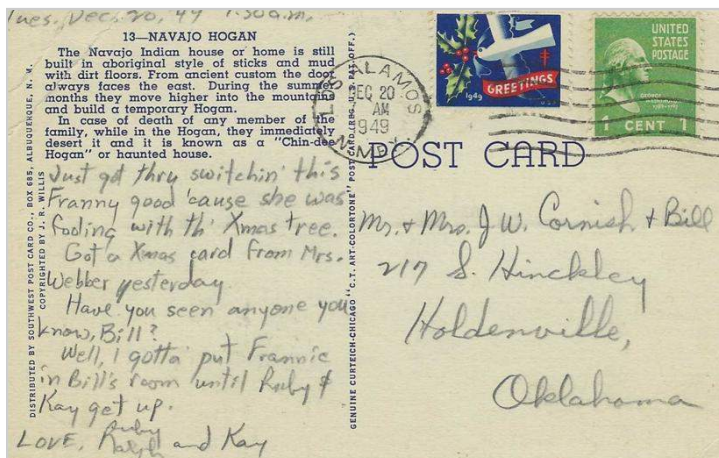 Tues, Dec. 20, 49 1:30 a.m.
13—NAVAJO HOGAN
The Navajo Indian house or home is still
built in aboriginal style of sticks and mud
with dirt floors. From ancient custom the door
always faces the east. During the summer
months they move higher into the mountains
and build a temporary Hogan.
In case of death of any member of the
family, while in the Hogan, they immediately
desert it and it is known as a "Chin-dee
Hogan" or haunted house.
Just got thru switchin' this
Franny good 'cause she was
fooling with th' Xmas tree.
Got a Xmas card from Mrs.
Webber yesterday.
Have you seen anyone you
know, Bill?
Well, I gotta' put Frannie
in Bill's room until Ruby &
Kay get up.
Ruby
LOVE, Ralph and Kay
DISTRIBUTED BY SOUTHWEST POST CARD CO., BOX 685, ALBUQUERQUE, N. M.
COPYRIGHTED BY J. R. WILLIS
GENUINE CURTEICH-CHICAGO "C.T. ART-COLORTONE" POST CARD (REG. U.S. PAT. OFF.)
LOS ALAMOS
DEC 20
AM
1949
N. MEX.
GREETINGS
1949
USA
UNITED
STATES
POSTAGE
GEORGE
WASHINGTON
1 CENT 1
POST CARD
Mr. & Mrs. J. W. Cornish & Bill
217 S. Hinckley
Holdenville,
Oklahoma